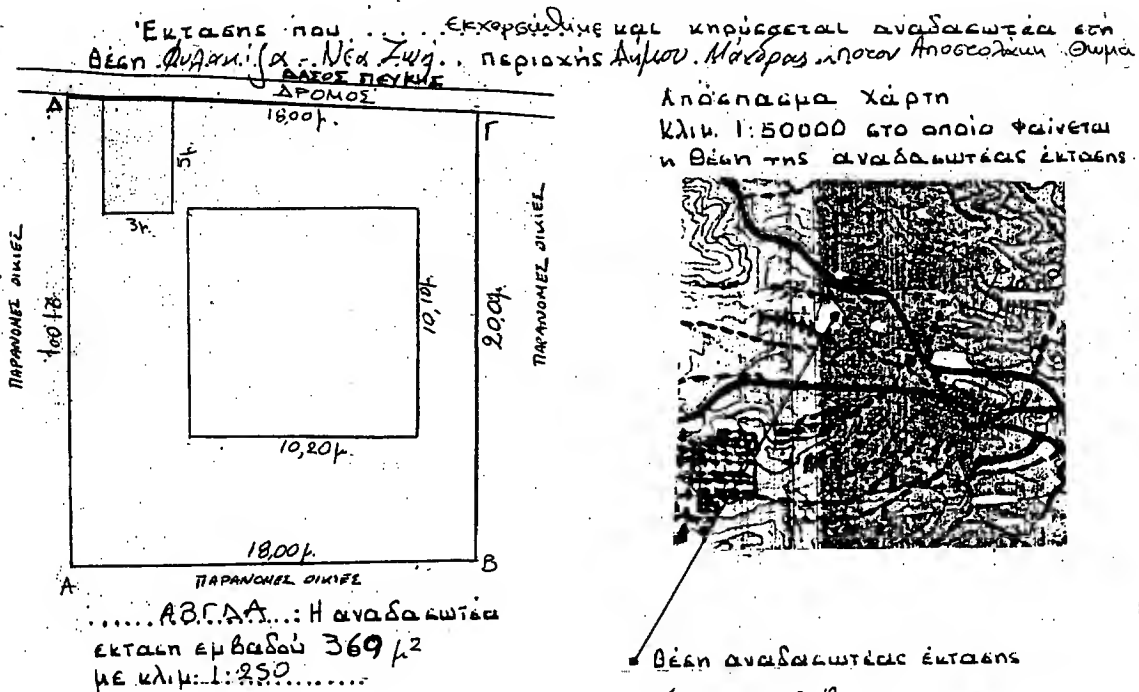 Έκτασης που ..... εκχερσώθηκε και κηρύσσεται αναδασωτέα στη
θέση Φυλακίζα - Νέα Ζωή .. περιοχής Δήμου Μάνδρας Αποστολάκη Θωμά
ΔΑΣΟΣ ΠΕΥΚΗΣ
ΔΡΟΜΟΣ
Δ
18,00μ.
Γ
5μ.
3μ.
ΠΑΡΑΝΟΜΕΣ ΟΙΚΙΕΣ
10,10μ.
20,0μ.
ΠΑΡΑΝΟΜΕΣ ΟΙΚΙΕΣ
10,20μ.
18,00μ.
Α
Β
ΠΑΡΑΝΟΜΕΣ ΟΙΚΙΕΣ
...... ΑΒΓΔΑ...: Η αναδασωτέα
έκταση εμβαδού 369 μ²
με κλιμ: 1:250.........
Απόσπασμα χάρτη
Κλιμ. 1:50000 στο οποίο φαίνεται
η θέση της αναδασωτέας έκτασης
Θέση αναδασωτέας έκτασης